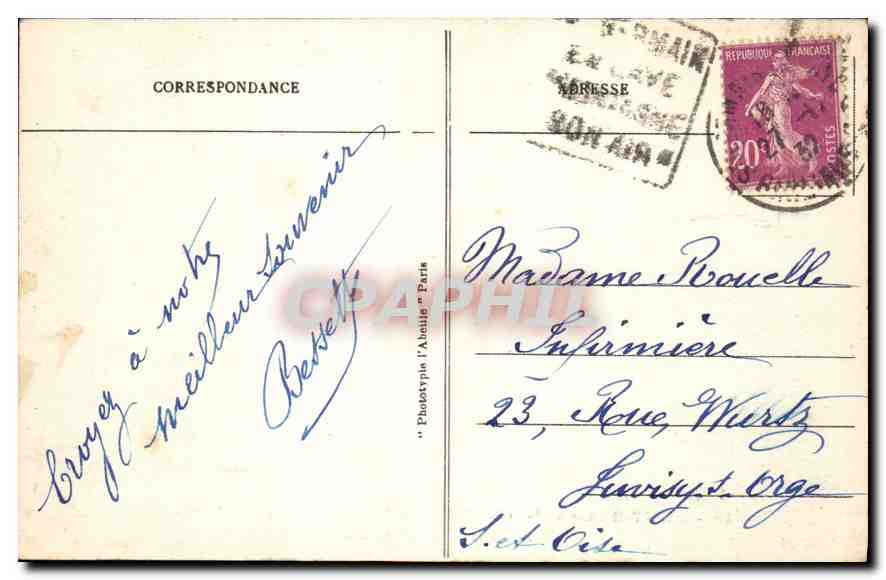 CORRESPONDANCE
ADRESSE
GERMAIN
EN LAYE
BON AIR
REPUBLIQUE FRANÇAISE
20c
POSTES
Croyez à notre
meilleur souvenir
Bessett
" Phototypie l'Abeille " Paris
CPAPHIL
Madame Rouelle
Infirmière
23, Rue, Wurtz
Juvisy s. Orge
S. et Oise